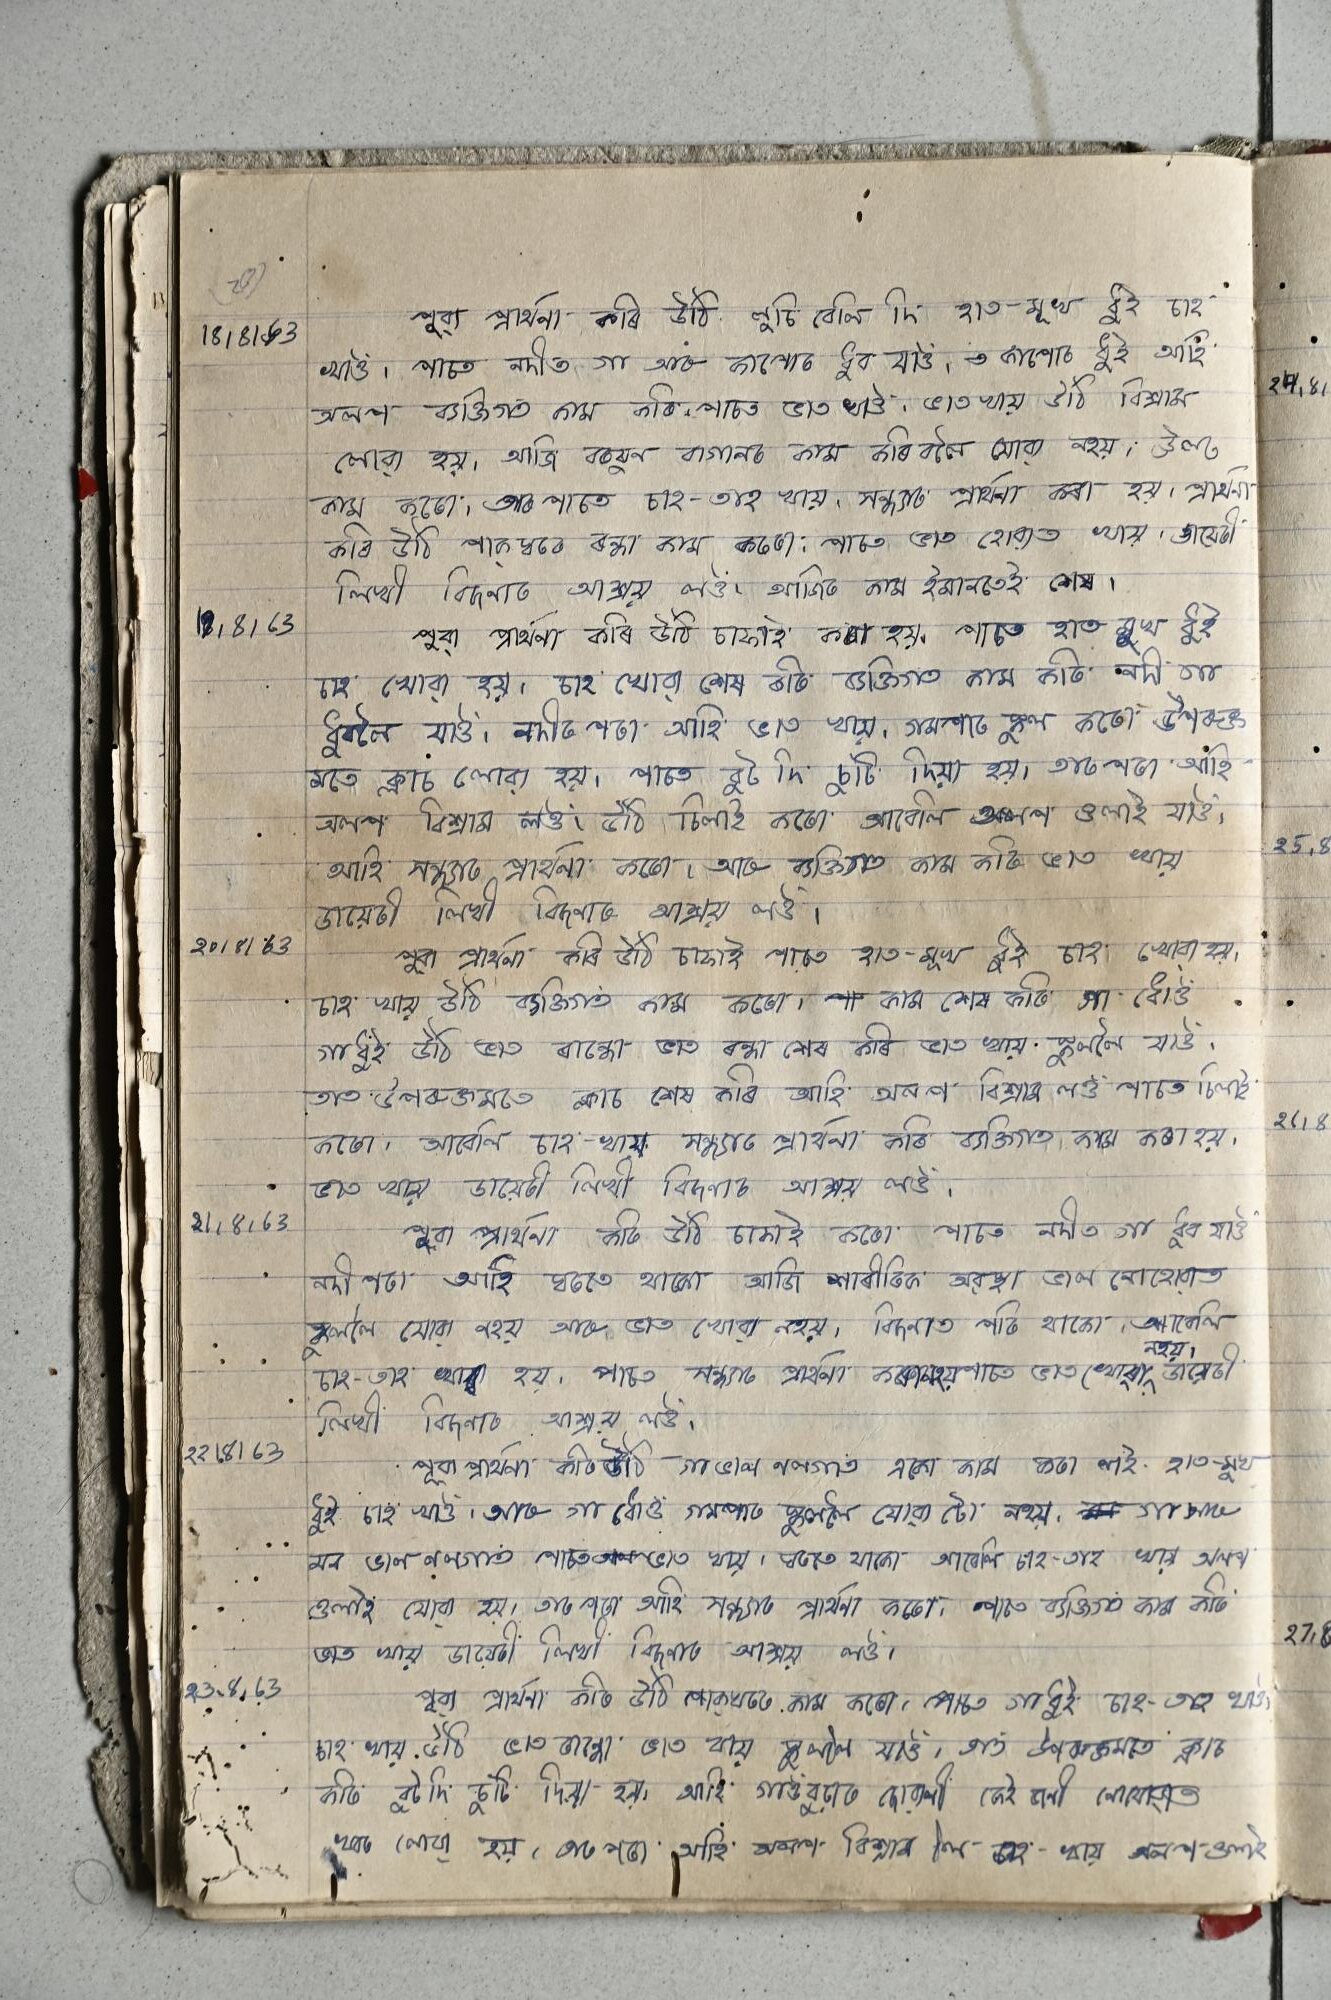 18/8/63 পুৱা প্ৰাৰ্থনা কৰি উঠি লুচি বেলি দি হাত-মূখ ধুই চাহ
খাওঁ। পাচত নদীত গা আৰু কাপোৰ ধুব যাওঁ। কাপোৰ ধুই আহি
অলপ ব্যক্তিগত কাম কৰি পাচত ভাত খাওঁ। ভাত খায় উঠি বিশ্ৰাম
লোৱা হয়। আজি বাগানত কাম কৰিবলৈ যোৱা নহয়।
কাম কৰো। পাচত চাহ-তাহ খায়। সন্ধ্যাত প্ৰাৰ্থনা কৰা হয়। প্ৰাৰ্থনা
কৰি উঠি পাকঘৰত ৰন্ধা কাম কৰো। পাচত ভাত খোৱাত খায়। ডায়েৰী
লিখী বিচনাত আশ্ৰয় লওঁ। আজিৰ কাম ইমানতেই শেষ।
19/8/63 পুৱা প্ৰাৰ্থনা কৰি উঠি চাফাই কৰা হয়। পাচত হাত মুখ ধুই
চাহ খোৱা হয়। চাহ খোৱা শেষ কৰি ব্যক্তিগত কাম কৰি নদী গা
ধুবলৈ যাওঁ। নদীৰ পৰা আহি ভাত খায়। গমপাত স্কুল কৰোঁ উপৰুক্ত
মতে ক্লাচ লোৱা হয়। পাচত বুট দি চুটি দিয়া হয়। তাৰ পৰা আহি
অলপ বিশ্ৰাম লওঁ। উঠি চিলাই কৰো আবেলি অলপ ওলাই যাওঁ।
আহি সন্ধ্যাত প্ৰাৰ্থনা কৰো। আৰু ব্যক্তিগত কাম কৰি ভাত খায়
ডায়েৰী লিখী বিচনাত আশ্ৰয় লওঁ।
20/8/63 পুৱা প্ৰাৰ্থনা কৰি উঠি চাফাই পাচত হাত-মূখ ধুই চাহ খোৱা হয়।
চাহ খায় উঠি ব্যক্তিগত কাম কৰো। কাম শেষ কৰি গা ধোওঁ
গা ধুই উঠি ভাত ৰান্ধো ভাত ৰন্ধা শেষ কৰি ভাত খায় স্কুললৈ যাওঁ।
তাত উপৰুক্তমতে ক্লাচ শেষ কৰি আহি অলপ বিশ্ৰাম লওঁ পাচত চিলাই
কৰো। আবেলি চাহ-খায় সন্ধ্যাত প্ৰাৰ্থনা কৰি ব্যক্তিগত কাম কৰা হয়।
ভাত খায় ডায়েৰী লিখী বিচনাত আশ্ৰয় লওঁ।
21/8/63 পুৱা প্ৰাৰ্থনা কৰি উঠি চাফাই কৰো পাচত নদীত গা ধুব যাওঁ
নদী পৰা আহি ঘৰতে থাকো আজি শাৰীৰিক অৱস্থা ভাল নোহোৱাত
স্কুললৈ যোৱা নহয় আৰু ভাত খোৱা নহয়। বিচনাত পৰি থাকো। আবেলি
চাহ-তাহ খোৱা হয়। পাচত সন্ধ্যাত প্ৰাৰ্থনা কৰা নহয় পাচত ভাত খোৱা নহয়। ডায়েৰী
লিখী বিচনাত আশ্ৰয় লওঁ।
22/8/63 পুৱা প্ৰাৰ্থনা কৰি উঠি গা ভাল নলগাত একো কাম কৰা নাই। হাত-মুখ
ধুই চাহ খাওঁ। আৰু গা ধোওঁ গমপাত স্কুললৈ যোৱা টো নহয়। গা আৰু
মন ভাল নলগাত পাচত ভাত খায়। ঘৰতে থাকো আবেলি চাহ-তাহ খায় অলপ
ওলাই যোৱা হয়। তাৰ পৰা আহি সন্ধ্যাত প্ৰাৰ্থনা কৰো। পাচত ব্যক্তিগত কাম কৰি
ভাত খায় ডায়েৰী লিখী বিচনাত আশ্ৰয় লওঁ।
23.8.63 পুৱা প্ৰাৰ্থনা কৰি উঠি পাকঘৰত কাম কৰো। পাচত গা ধুই চাহ-তাহ খাওঁ।
চাহ খায় উঠি ভাত ৰান্ধো ভাত খায় স্কুললৈ যাওঁ। তাত উপৰুক্তমতে ক্লাচ
কৰি বুট দি চুটি দিয়া হয়। আহি গাওঁবুঢ়াৰ ছোৱালী
খবৰ লোৱা হয়। তাৰ পৰা আহি অলপ বিশ্ৰাম লৈ চাহ-খায় অলপ ওলাই
24.8.
25.8
26.8
27.8